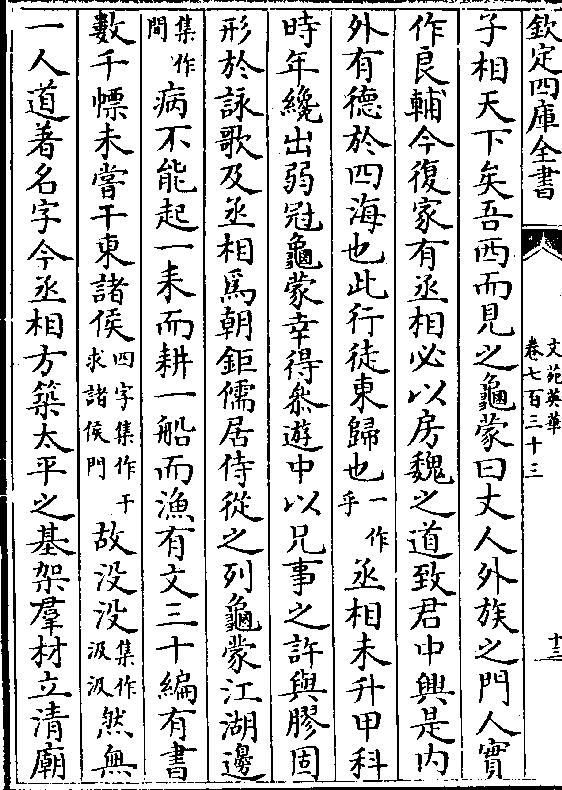 欽定四庫全書
文苑英華
卷七百三十三
十三
子相天下矣吾西而見之龜蒙曰丈人外族之門人實
作良輔今復家有丞相必以房魏之道致君中興是内
外有德於四海也此行徒東歸也一作乎丞相未升甲科
時年纔出弱冠龜蒙幸得叅遊中以兄事之許與膠固
形於詠歌及丞相爲朝鉅儒居侍從之列龜蒙江湖邊
集作間病不能起一耒而耕一船而漁有文三十編有書
數千幖未嘗干東諸侯四字集作干求諸侯門故没没集作汲汲然無
一人道著名字今丞相方築太平之基架羣材立清廟